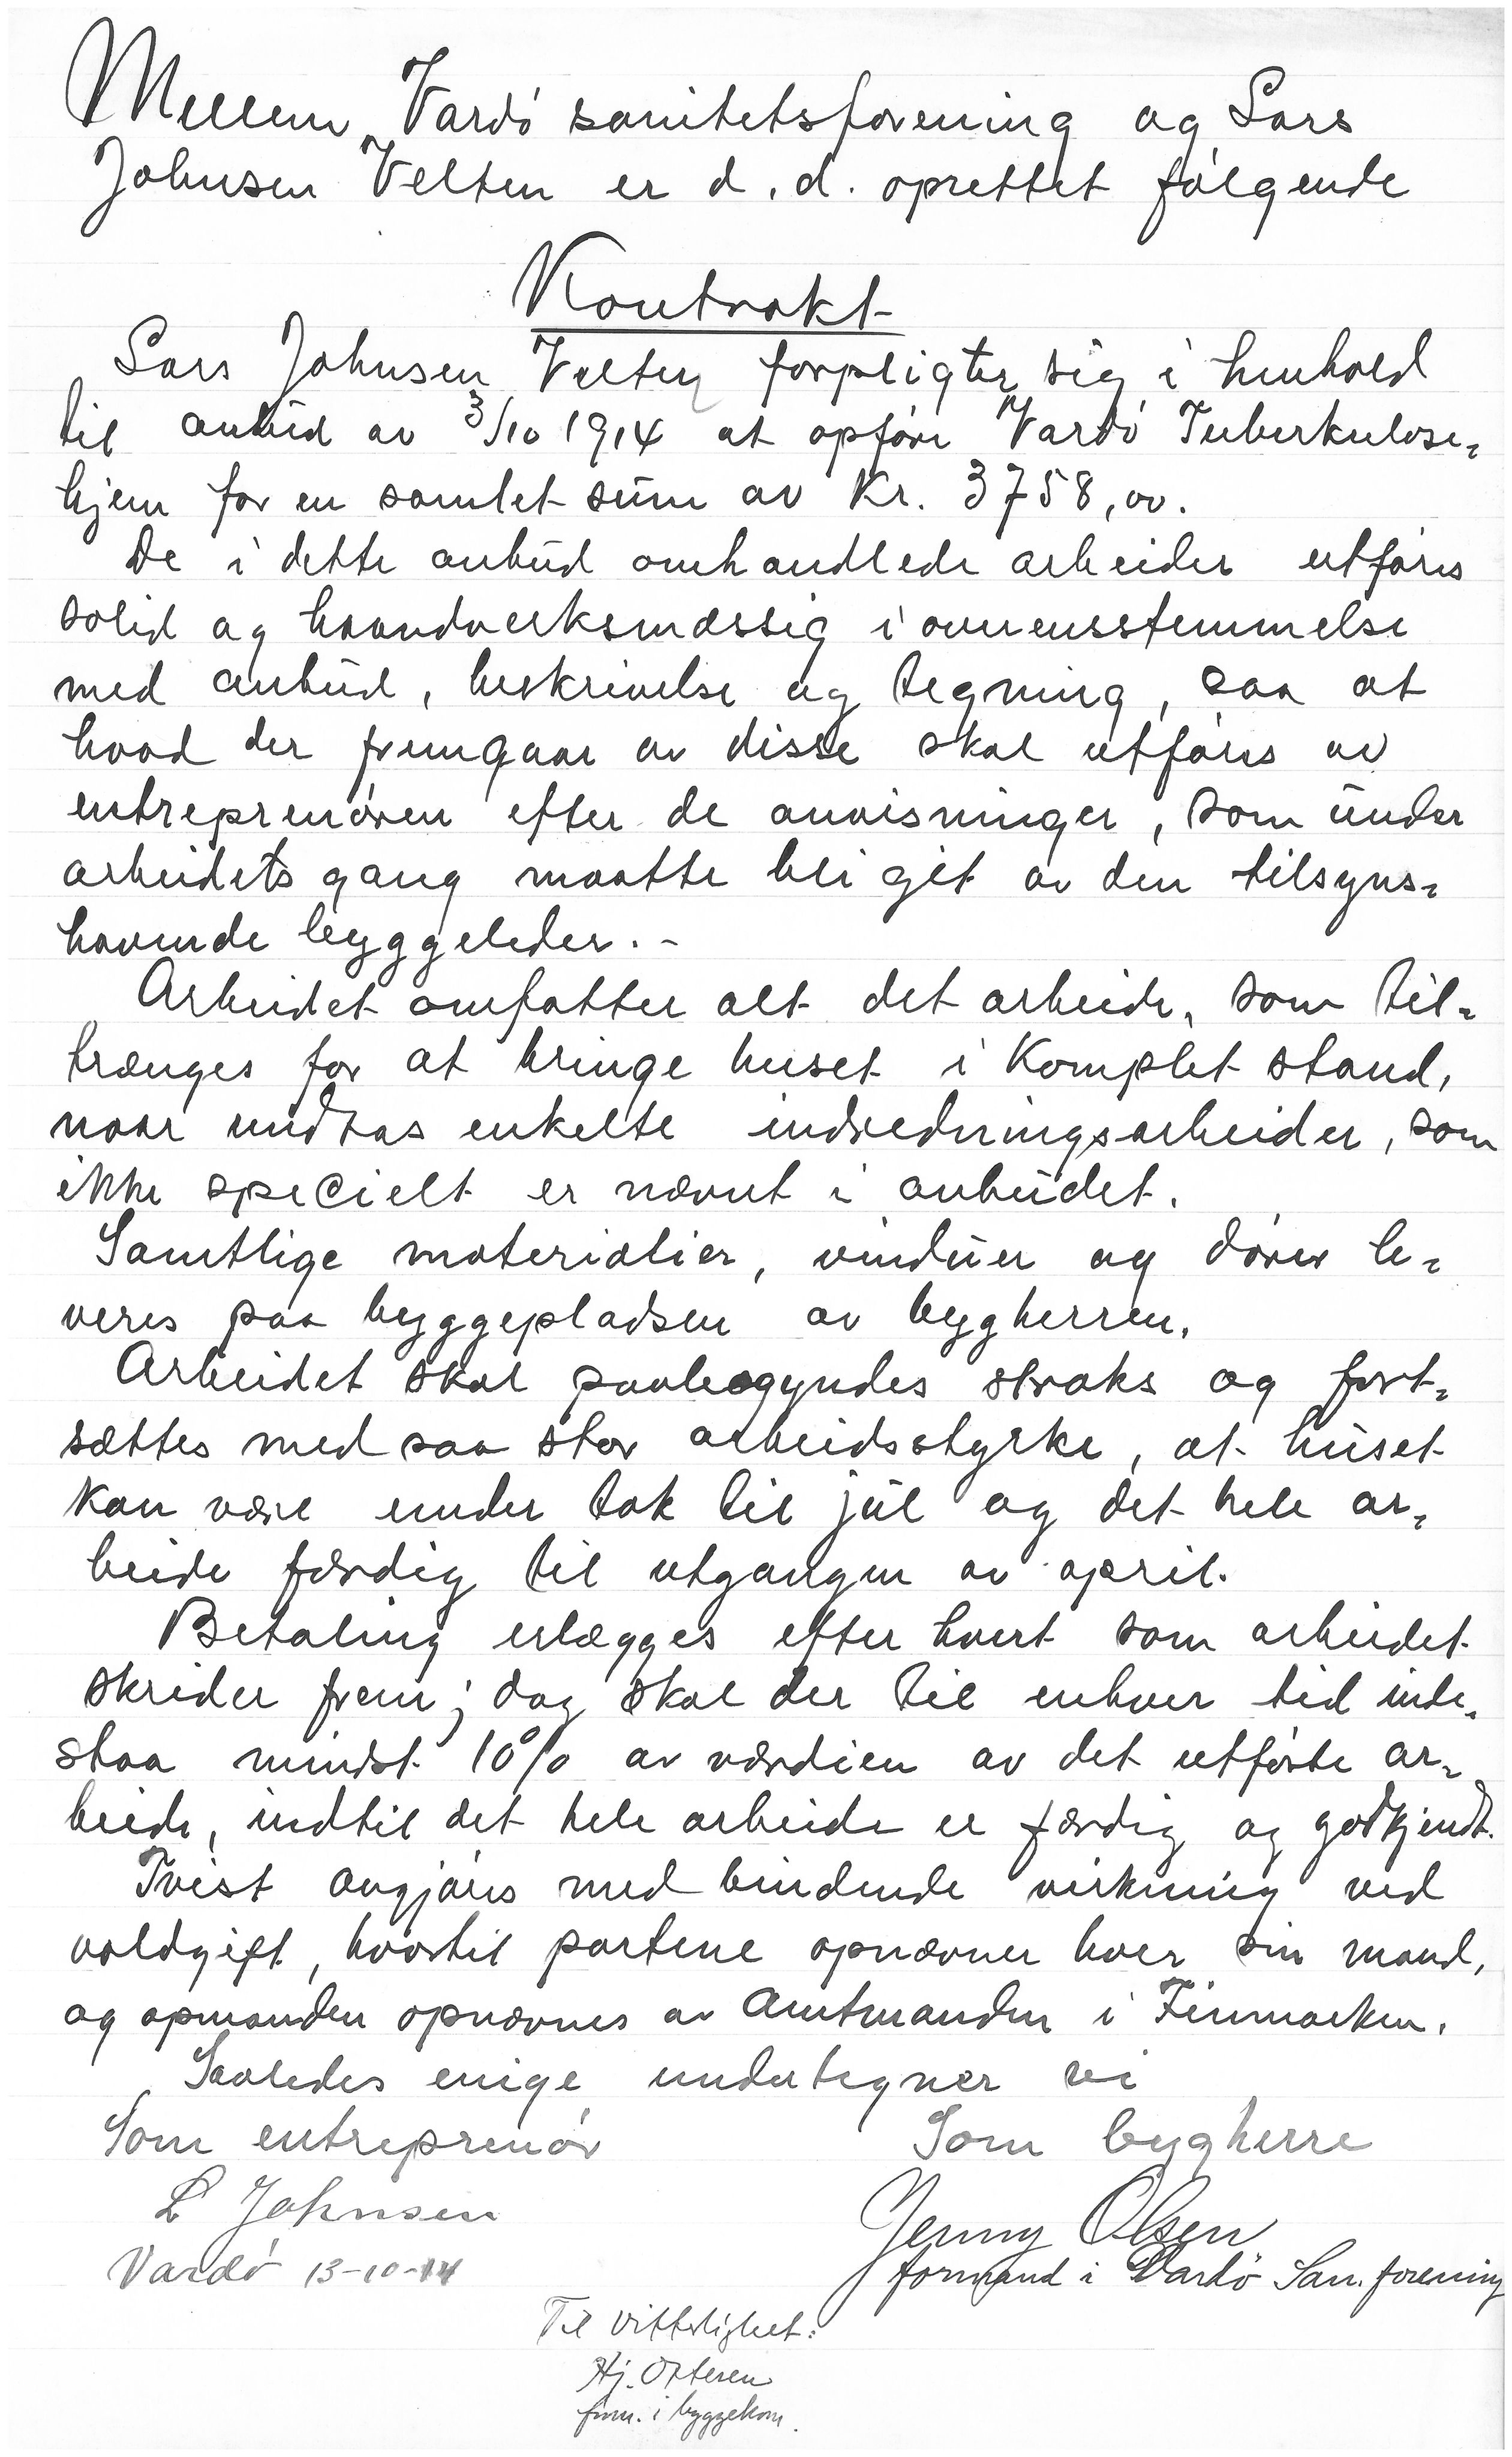 Mellem Vardö sanitetsforening og Lars
Johnsen Velten er d. d. oprettet følgende
Kontrakt
Lars Johnsen Velten forpligter sig i henhold
til anbud av 3/10 1914 at opføre Vardö Tuberkulose-
hjem for en samlet sum av Kr. 3758,00.
De i dette anbud omhandlede arbeider utføres
solid og haandverksmæssig i overensstemmelse
med anbud, beskrivelse og tegning, saa at
hvad der fremgaar av disse skal utføres av
entreprenøren efter de anvisninger, som under
arbeidets gang maatte bli git av den tilsyns-
havende byggeleder. -
Arbeidet omfatter alt det arbeide, som til-
trænges for at bringe huset i komplet stand,
naar undtas enkelte indredningsarbeider, som
ikke specielt er nævnt i anbudet.
Samtlige materialier, vinduer og dører le-
veres paa byggepladsen av bygherren.
Arbeidet skal paabegyndes straks og fort-
sættes med saa stor arbeidsstyrke, at huset
kan være under tak til jul og det hele ar-
beide færdig til utgangen av april.
Betaling erlægges efter hvert som arbeidet
skrider frem; dog skal der til enhver tid inde-
staa mindst 10% av værdien av det utførte ar-
beide, indtil det hele arbeide er færdig og godkjendt.
Tvist avgjøres med bindende virkning ved
voldgift, hvortil partene opnævner hver sin mand,
og opmanden opnævnes av Amtmanden i Finmarken.
Saaledes enige undertegner vi
Som entreprenör
Som bygherre
L Johnsen
Jenny Olsen
Vardö 13-10-14
formand i Vardö San. forening
Til vitterlighet:
Hj. Ottesen
form. i byggekom.